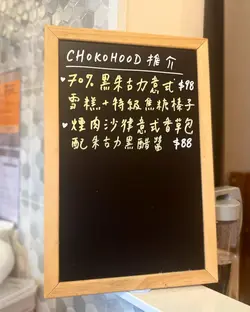 CHOKOHOOD 推介
♥70% 黑朱古力意式 $98
雪糕+特級焦糖榛子
♥煙肉沙律意式香草包
配朱古力黑醋醬 $88